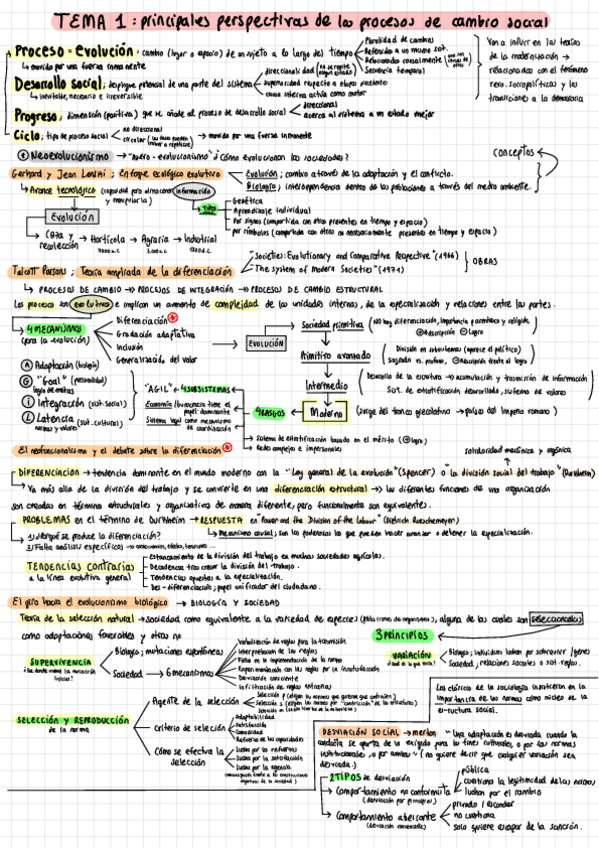 TEMA 1: principales perspectivas de los procesos de cambio social
Proceso = Evolución: cambio (lugar o espacio) de un sujeto a lo largo del tiempo
Pluralidad de cambios
Referidos a un mismo sist.
Relacionados causalmente
Secuencia temporal
Van a influir en las teorías de la modernización → relacionadas con el fenómeno
transiciones a la democracia
↳ movido por una fuerza inmanente
Desarrollo social: despliegue potencial de una parte del sistema
direccionalidad
superioridad respecto a etapa
como interna activa como motor
↳ inevitable, necesario e irreversible
Progreso: dimensión (positiva) que se añade al proceso de desarrollo social
direccional
acerca al sistema a un estado mejor
Ciclo: tipo de proceso social
no direccional
circular
→ movido por una fuerza inmanente
Neoevolucionismo → "nuevo-evolucionismo" ¿Cómo evolucionan las sociedades?
conceptos
Gerhard y Jean Lenski: Enfoque ecológico evolutivo
Evolución: cambio a través de la adaptación y el conflicto.
Ecología: interdependencia dentro de las poblaciones a través del medio ambiente.
↳ Avance tecnológico (capacidad para almacenar información y manipularla)
TIPOS
Genética
Aprendizaje individual
Por signos (compartida con otros presentes en tiempo y espacio)
por símbolos (compartida con otros no necesariamente presentes en tiempo y espacio)
Evolución
Caza y recolección → Hortícola → Agraria → Industrial
Talcott Parsons: Teoría ampliada de la diferenciación
"Societies: Evolutionary and Comparative Perspective" (1966)
"The system of Modern Societies" (1971)
OBRAS
↳ PROCESOS DE CAMBIO → PROCESOS DE INTEGRACIÓN → PROCESOS DE CAMBIO ESTRUCTURAL
Los procesos son evolutivos e implican un aumento de complejidad de las unidades internas, de la especialización y relaciones entre las partes.
4 MECANISMOS
(para la evolución)
Diferenciación
Gradación adaptativa
Inclusión
Generalización del valor
EVOLUCIÓN
Sociedad primitiva
(NO hay diferenciación, importancia parentesco y religión.
⊕ Adscripción ⊖ logro
Primitivo avanzado
División en subsistemas (aparece el político)
sagrado vs. profano, ⊕ adscripción frente al logro
Intermedio
Desarrollo de la escritura → acumulación y transmisión de información
Sist. de estratificación desarrollado, sistema de valores
Moderno
(surge del tronco grecolatino → pulso del Imperio romano)
Ⓐ Adaptación (biología)
Ⓖ "Goal" (personalidad)
logro de metas
Ⓘ Integración (sist. social)
Ⓛ Latencia (sist. cultural)
normas y valores
"AGIL" ← 4 SUBSISTEMAS
4 RASGOS
Economía (burocracia tiene el papel dominante
Sistema legal como mecanismo de coordinación
Sistema de estratificación basado en el mérito (⊕ logro)
Redes complejas e impersonales
El neofuncionalismo y el debate sobre la diferenciación
solidaridad mecánica y orgánica
DIFERENCIACIÓN → tendencia dominante en el mundo moderno con la "Ley general de la evolución" (Spencer) o "la división social del trabajo" (Durkheim)
↳ Va más allá de la división del trabajo y se convierte en una diferenciación estructural → las diferentes funciones de una organización
son creadas en término estructurales y organizativos de manera diferente, pero funcionalmente son equivalentes.
PROBLEMAS en el término de Durkheim → RESPUESTA en Power and the Division of the Labour" (Dietrich Rueschemeyer)
↳ Mecanismo causal: son los poderosos los que pueden hacer avanzar o detener la especialización.
1) ¿Porqué se produce la diferenciación?
2) Falta análisis específicos →
TENDENCIAS CONTRARIAS
a la línea evolutiva general
Estancamiento de la división del trabajo en muchas sociedades agrícolas.
Decadencia tras crecer la división del trabajo.
Tendencias opuestas a la especialización.
Des-diferenciación: papel unificador del ciudadano.
El giro hacia el evolucionismo biológico → BIOLOGÍA Y SOCIEDAD
Teoría de la selección natural → sociedad como equivalente a la variedad de especies, alguna de las cuales son seleccionadas
como adaptaciones favorables y otras no
3 PRINCIPIOS
VARIACIÓN
Biología: individuos luchan por sobrevivir/genes
Sociedad: relaciones sociales o sist. reglas.
SUPERVIVENCIA
Biología: mutaciones espontáneas
Sociedad → 6 mecanismos
Verbalización de reglas para la transmisión
Interpretación de las reglas
Fallos en la implementación de la norma
Experimentación con las reglas por la insatisfacción
Desviación consciente
Infiltración de reglas extrañas
SELECCIÓN Y REPRODUCCIÓN
de la norma
Agente de la selección
Criterio de selección
Adaptabilidad
Satisfacción
Comodidad
Refuerzo de las capacidades
Cómo se efectua la selección
Lucha por los recursos
Lucha por la satisfacción
Lucha por la agencia
Los clásicos de la sociología insistieron en la
importancia de las normas como núcleo de la
estructura social.
DESVIACIÓN SOCIAL → Merton "Una adaptación es desviada cuando la
conducta se aparta de lo exigido para los fines culturales, o por las normas
institucionales, o por ambos" (no quiere decir que cualquier variación sea
desviada.)
2 TIPOS de desviación
Comportamiento no conformista
(desviación por principios)
pública
cuestiona la legitimidad de las normas
luchan por el cambio
Comportamiento aberrante
privado / esconder
no cuestiona
solo quiere escapar de la sanción.